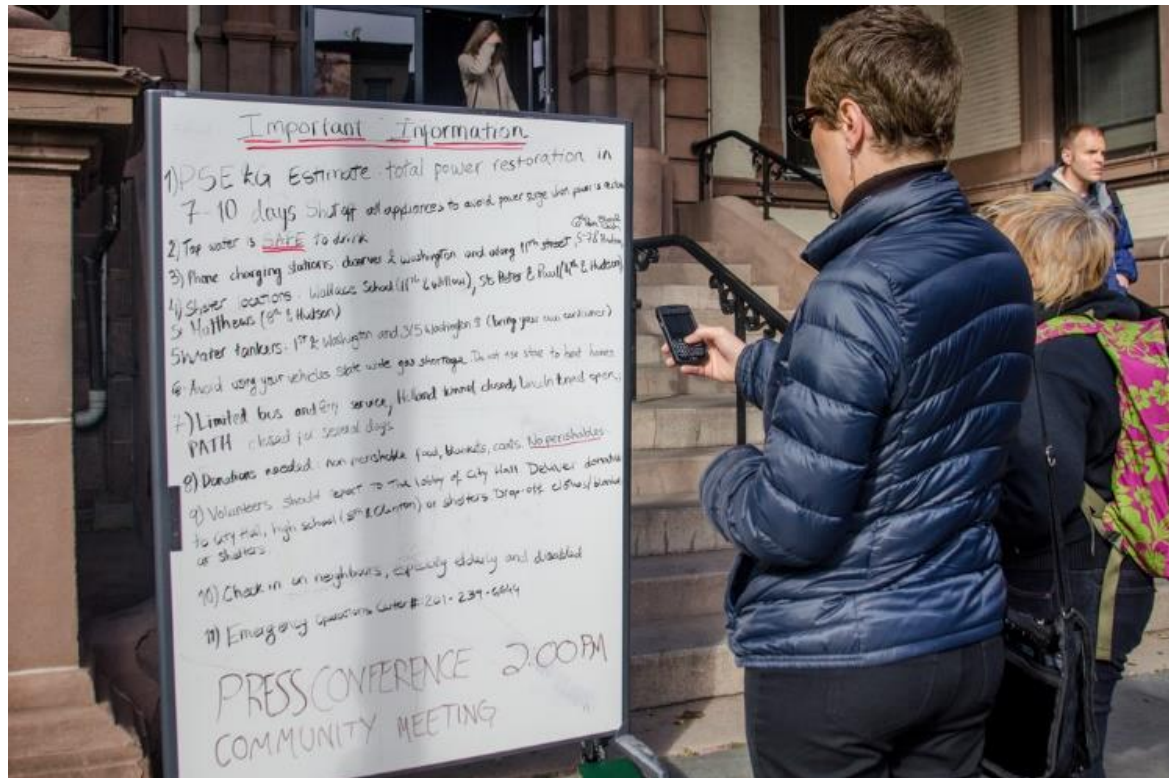 Important Information
1) PSE&G Estimate total power restoration in
7-10 days Shut off all appliances to avoid power surge when power is
2) Tap water is SAFE to drink
3) Phone charging stations & washington and along 11th street,
4) Shelter locations. Wallace School (11th & Willow), Sts Peter & Paul (4th & Hudson),
St Matthews (8th & Hudson)
5) Water tankers. 1st & Washington and 315 Washington (bring your own container)
6) Avoid using your vehicles state wide gas shortage. Do not use stove to heat homes
7) Limited bus and ferry service, Holland tunnel closed, Lincoln tunnel open,
PATH closed for several days
8) Donations needed: non perishable food, blankets, coats. No perishables
9) Volunteers should report to the lobby of City Hall Deliver donations
to city Hall, high school (8th & Clinton) or shelters Drop-off clothes/blankets
or shelters
10) Check in on neighbours, especially elderly and disabled
11) Emergency operations Center # 201-239-6644
PRESS CONFERENCE 2:00 PM
COMMUNITY MEETING